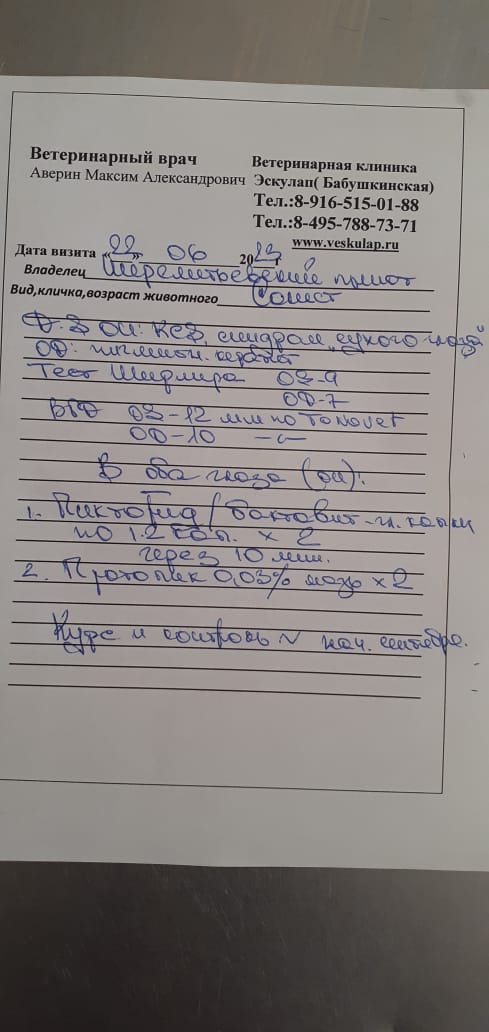 Ветеринарный врач
Аверин Максим Александрович
Ветеринарная клиника
Эскулап( Бабушкинская)
Тел.:8-916-515-01-88
Тел.:8-495-788-73-71
www.veskulap.ru
Дата визита «22» 06 2023г
Владелец Шереметьевский приют
Вид,кличка,возраст животного
Д-З ОИ: синдром "сухого глаза"
ОД: пигментн. кератит
Тест Ширмера OS-9
OD-7
ВГД OS-12 мм по Tonovet
OD-10 —"—
В оба глаза (ou):
1. / - гл. капли
по 1-2 кап. x 2
через 10 мин.
2. Протопик 0,03% мазь x2
Курс и контроль нач. сентября.